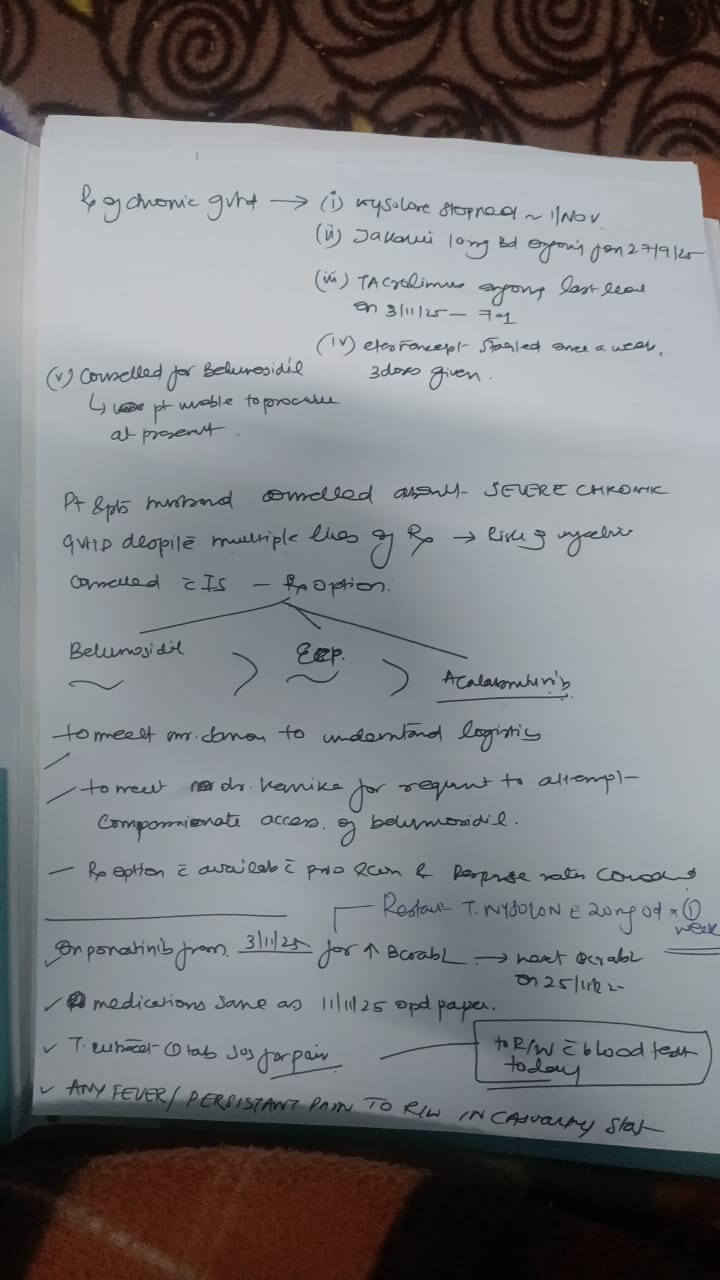 Rx of chronic gvhd → (i) wysolone stopped ~ 1/Nov.
(ii) Jakavi 10mg bd ongoing from 27/9/25
(iii) TAcrolimus ongoing last level
on 3/11/25 — 7.1
(iv) etanercept started once a week,
3 doses given.
(v) Counselled for Belumosidil
↳ pt unable to procure
at present.
Pt & pts husband counselled about SEVERE CHRONIC
GVHD despite multiple lines of Rx → Risk of infection
counselled c̄ IS — Rx option.
Belumosidil > ECP. > Acalabrutinib
to meet mr. to understand logistics
/ to meet dr. for request to attempt
compassionate access of belumosidil.
— Rx option c̄ available c̄ pros & cons & Response rates
Restart T. WYSOLON E 20mg od × ① week
✓ On ponatinib from 3/11/25 for ↑ BcrabL → next BcrabL
on 25/11/2
✓ medications same as 11/11/25 opd paper.
✓ T. ultracet ① tab sos for pain
to R/W c̄ blood test
today
✓ ANY FEVER / PERSISTANT PAIN TO R/W IN CASUALTY stat